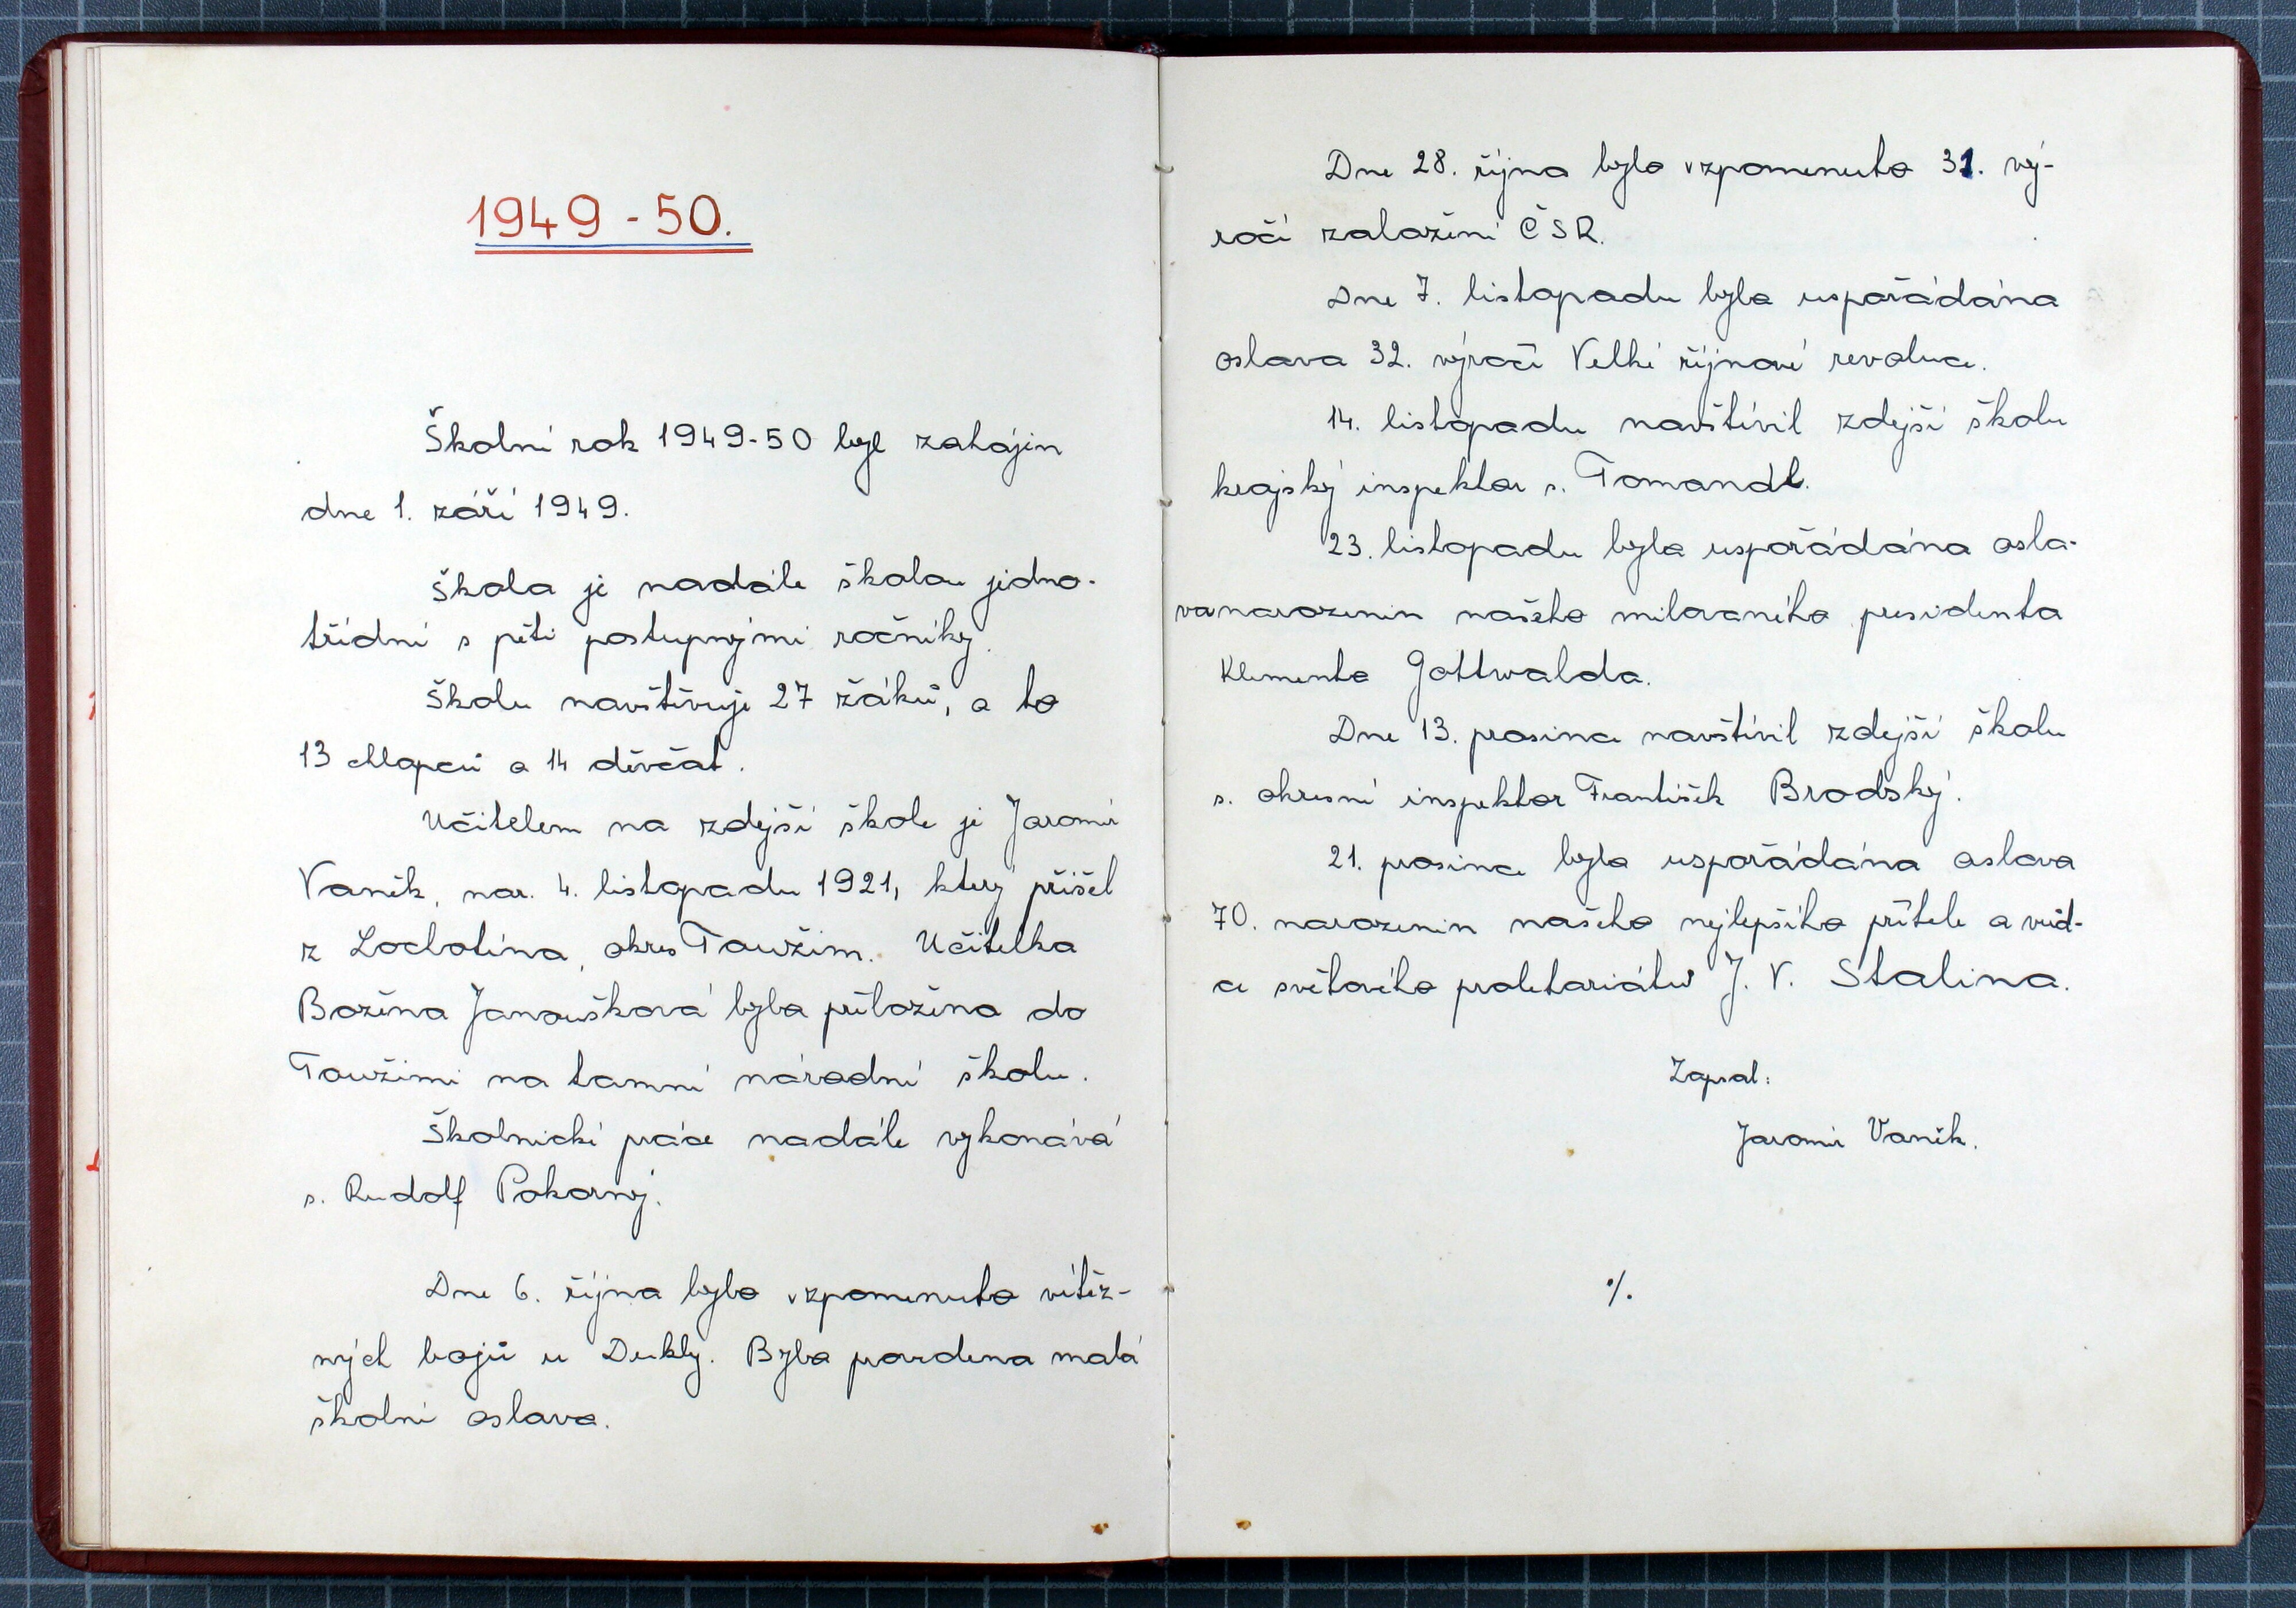 1949-50.
Školní rok 1949-50 byl zahájen
dne 1. září 1949.
Škola je nadále školou jedno-
třídní s pěti postupnými ročníky.
Školu navštěvuje 27 žáků, a to
13 chlapců a 14 děvčat.
Učitelem na zdejší škole je Jaromír
Vaněk, nar. 4. listopadu 1921, který přišel
z Lochotína, okres Toužim. Učitelka
Božena Janoušková byla přeložena do
Toužimi na tamní národní školu.
Školnické práce nadále vykonává
s. Rudolf Pokorný.
Dne 6. října bylo vzpomenuto vítěz-
ných bojů u Dukly. Byla provedena malá
školní oslava.
Dne 28. října bylo vzpomenuto 31. vý-
ročí založení ČSR.
Dne 7. listopadu byla uspořádána
oslava 32. výročí Velké říjnové revoluce.
14. listopadu navštívil zdejší školu
krajský inspektor s. Tomandl.
23. listopadu byla uspořádána osla-
va narozenin našeho milovaného presidenta
Klementa Gottwalda.
Dne 13. prosince navštívil zdejší školu
s. okresní inspektor František Brodský.
21. prosince byla uspořádána oslava
70. narozenin našeho nejlepšího přítele a vůd-
ce světového proletariátu J. V. Stalina.
Zapsal:
Jaromír Vaněk.
./.